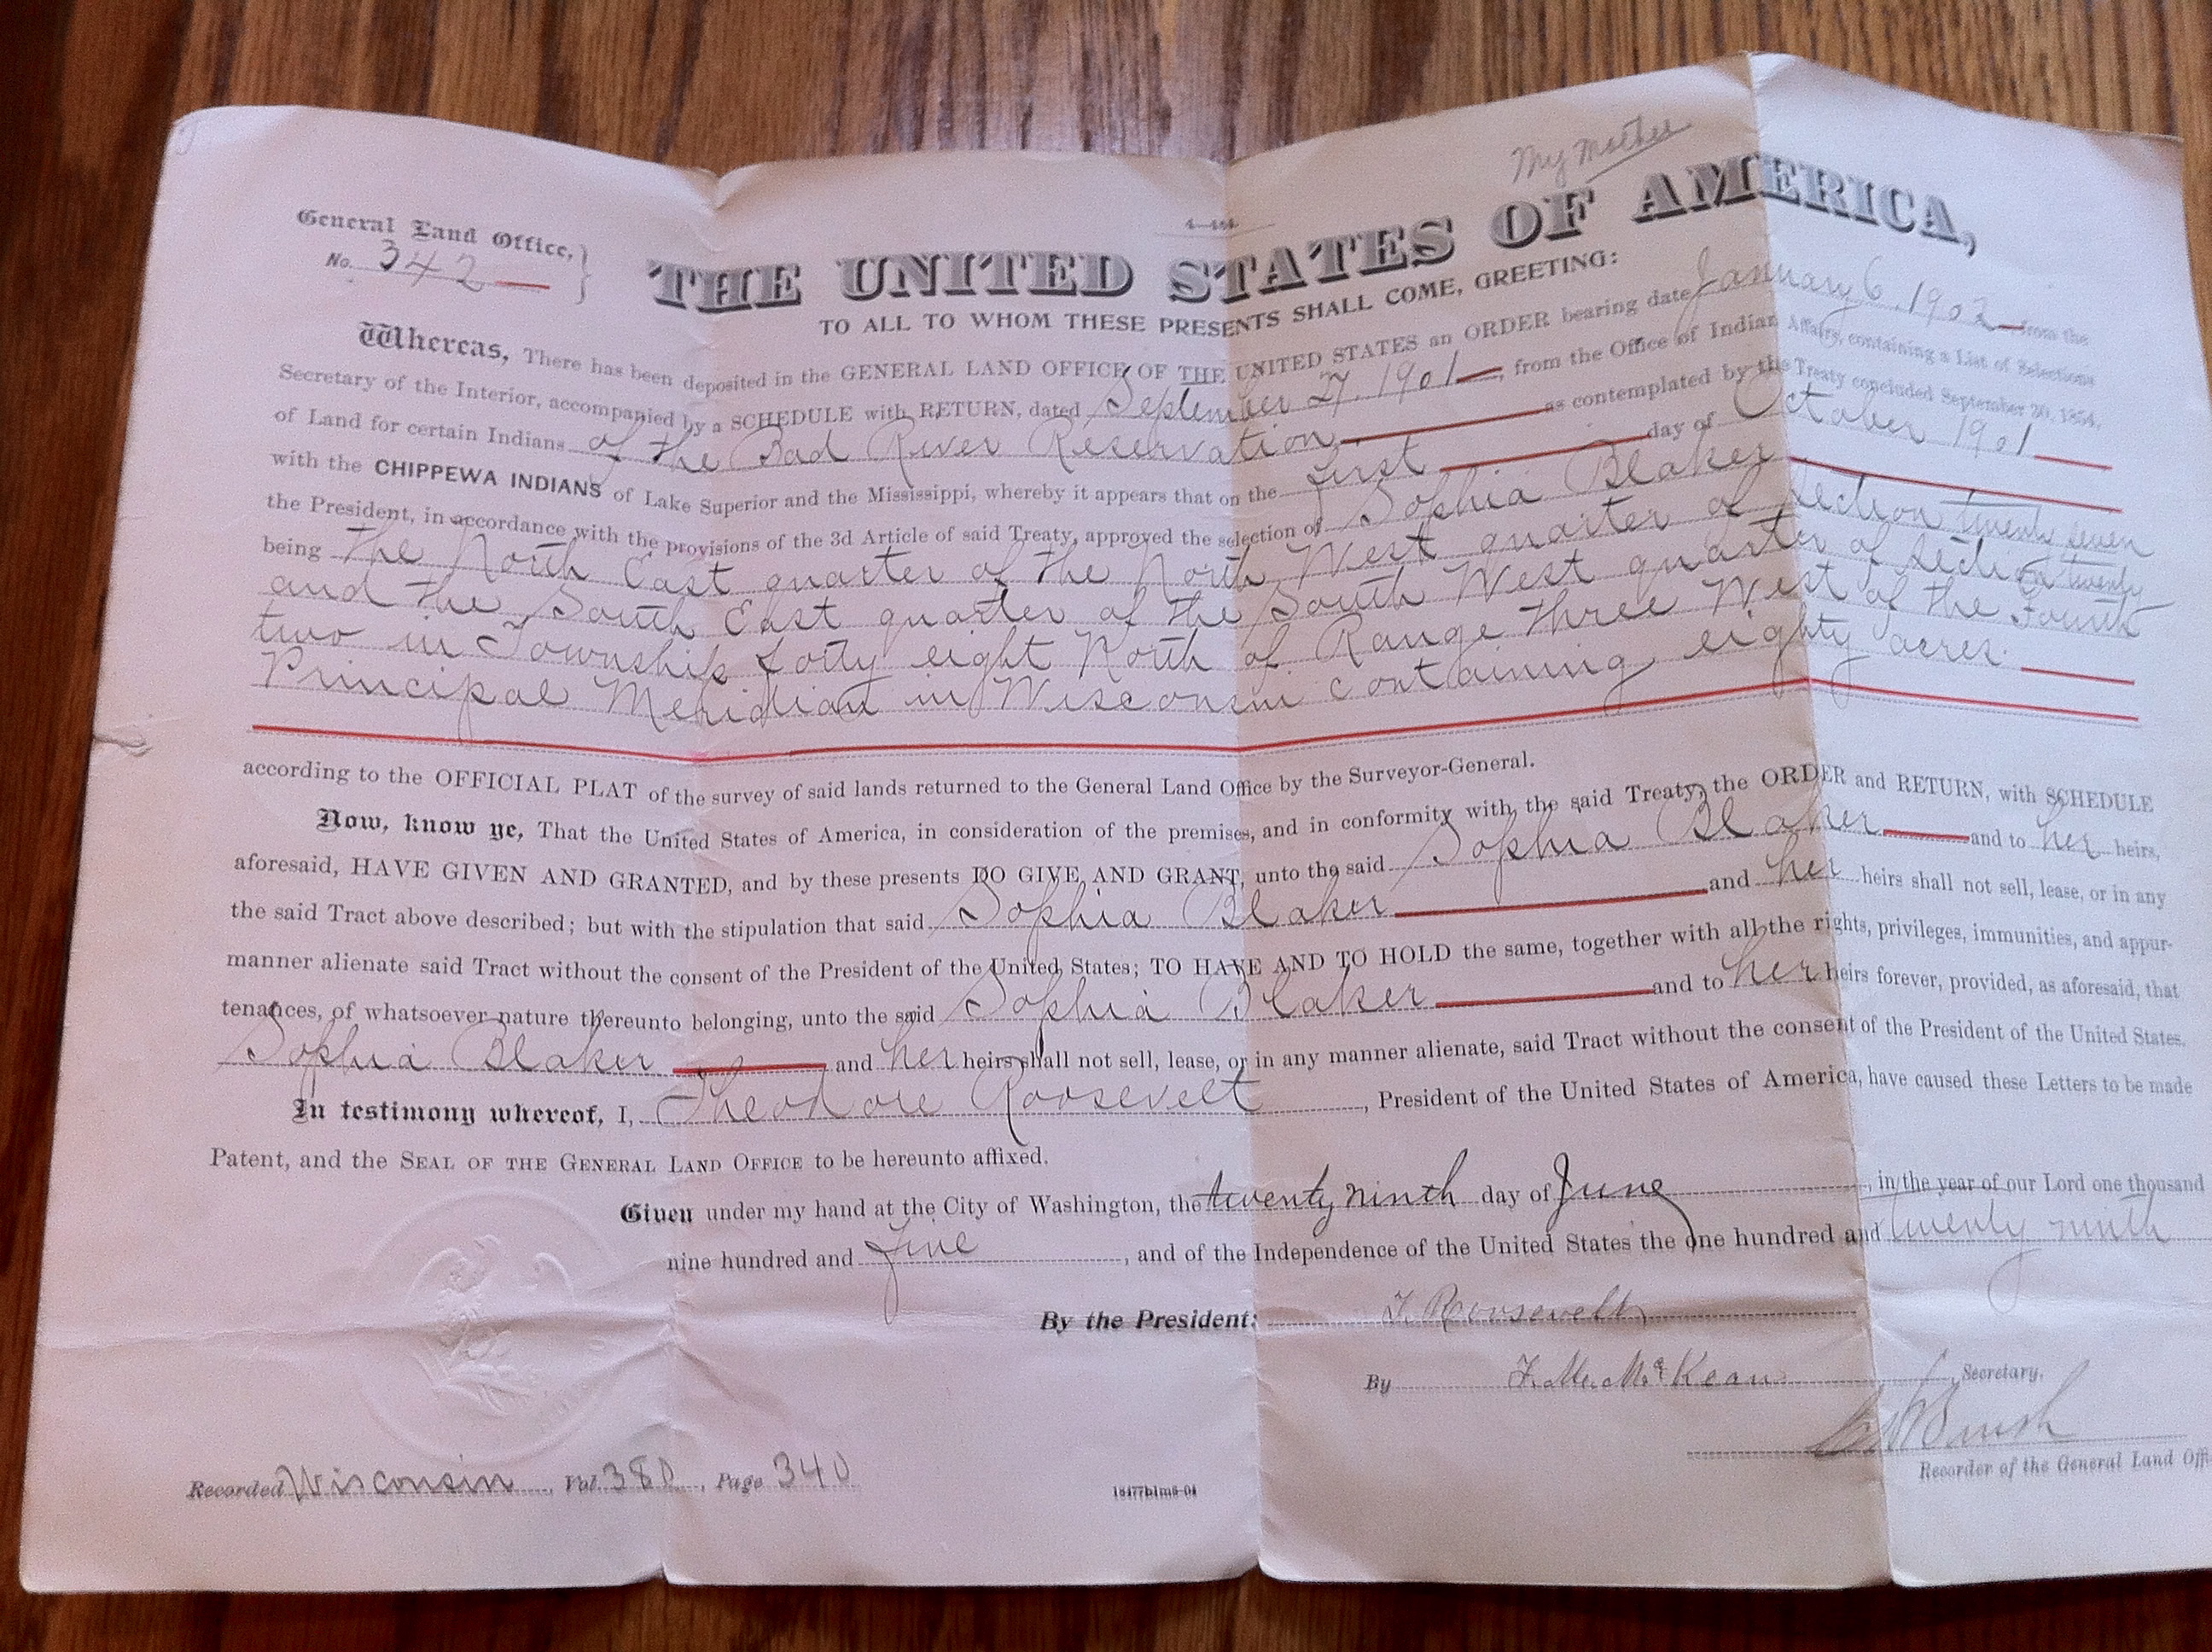 My Mother
General Land Office,
No. 342
THE UNITED STATES OF AMERICA,
TO ALL TO WHOM THESE PRESENTS SHALL COME, GREETING:
Whereas, There has been deposited in the GENERAL LAND OFFICE OF THE UNITED STATES an ORDER bearing date January 6, 1902 from the
Secretary of the Interior, accompanied by a SCHEDULE with RETURN, dated September 27, 1901, from the Office of Indian Affairs, containing a List of Selections
of Land for certain Indians of the Bad River Reservation as contemplated by the Treaty concluded September 30, 1854,
with the CHIPPEWA INDIANS of Lake Superior and the Mississippi, whereby it appears that on the first day of October 1901
the President, in accordance with the provisions of the 3d Article of said Treaty, approved the selection of Sophia Blaker
being the North East quarter of the North West quarter of Section twenty seven
and the South East quarter of the South West quarter of section twenty
two in Township forty eight North of Range three West of the Fourth
Principal Meridian in Wisconsin containing eighty acres.
according to the OFFICIAL PLAT of the survey of said lands returned to the General Land Office by the Surveyor-General.
Now, know ye, That the United States of America, in consideration of the premises, and in conformity with the said Treaty, the ORDER and RETURN, with SCHEDULE
aforesaid, HAVE GIVEN AND GRANTED, and by these presents DO GIVE AND GRANT, unto the said Sophia Blaker and to her heirs,
the said Tract above described; but with the stipulation that said Sophia Blaker and her heirs shall not sell, lease, or in any
manner alienate said Tract without the consent of the President of the United States; TO HAVE AND TO HOLD the same, together with all the rights, privileges, immunities, and appur-
tenances, of whatsoever nature thereunto belonging, unto the said Sophia Blaker and to her heirs forever, provided, as aforesaid, that
Sophia Blaker and her heirs shall not sell, lease, or in any manner alienate, said Tract without the consent of the President of the United States.
In testimony whereof, I, Theodore Roosevelt, President of the United States of America, have caused these Letters to be made
Patent, and the SEAL OF THE GENERAL LAND OFFICE to be hereunto affixed.
Given under my hand at the City of Washington, the twenty ninth day of June, in the year of our Lord one thousand
nine hundred and five, and of the Independence of the United States the one hundred and twenty ninth
By the President: T. Roosevelt
By F. M. McKean, Secretary.
Recorder of the General Land Off
Recorded Wisconsin, Vol. 380, Page 340